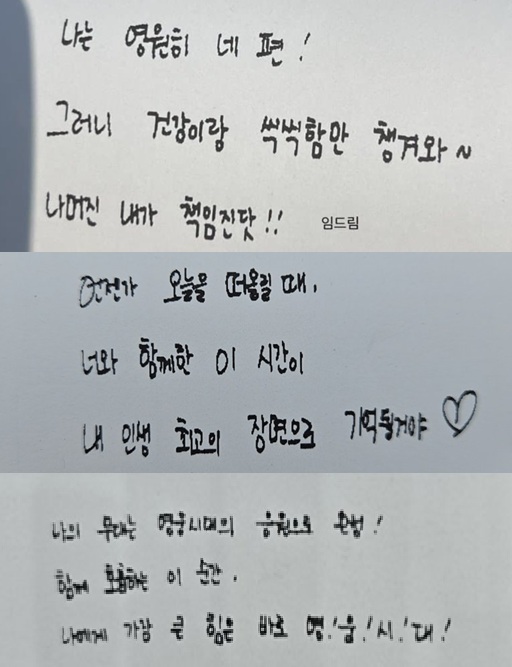 나는 영원히 네 편!
그러니 건강이랑 씩씩함만 챙겨와~
나머진 내가 책임진닷!!
임드림
언젠가 오늘을 떠올릴 때,
너와 함께한 이 시간이
내 인생 최고의 장면으로 기억될거야♡
나의 무대는 영웅시대의 응원으로 완성!
함께 호흡하는 이 순간,
나에게 가장 큰 힘은 바로 영!웅!시!대!